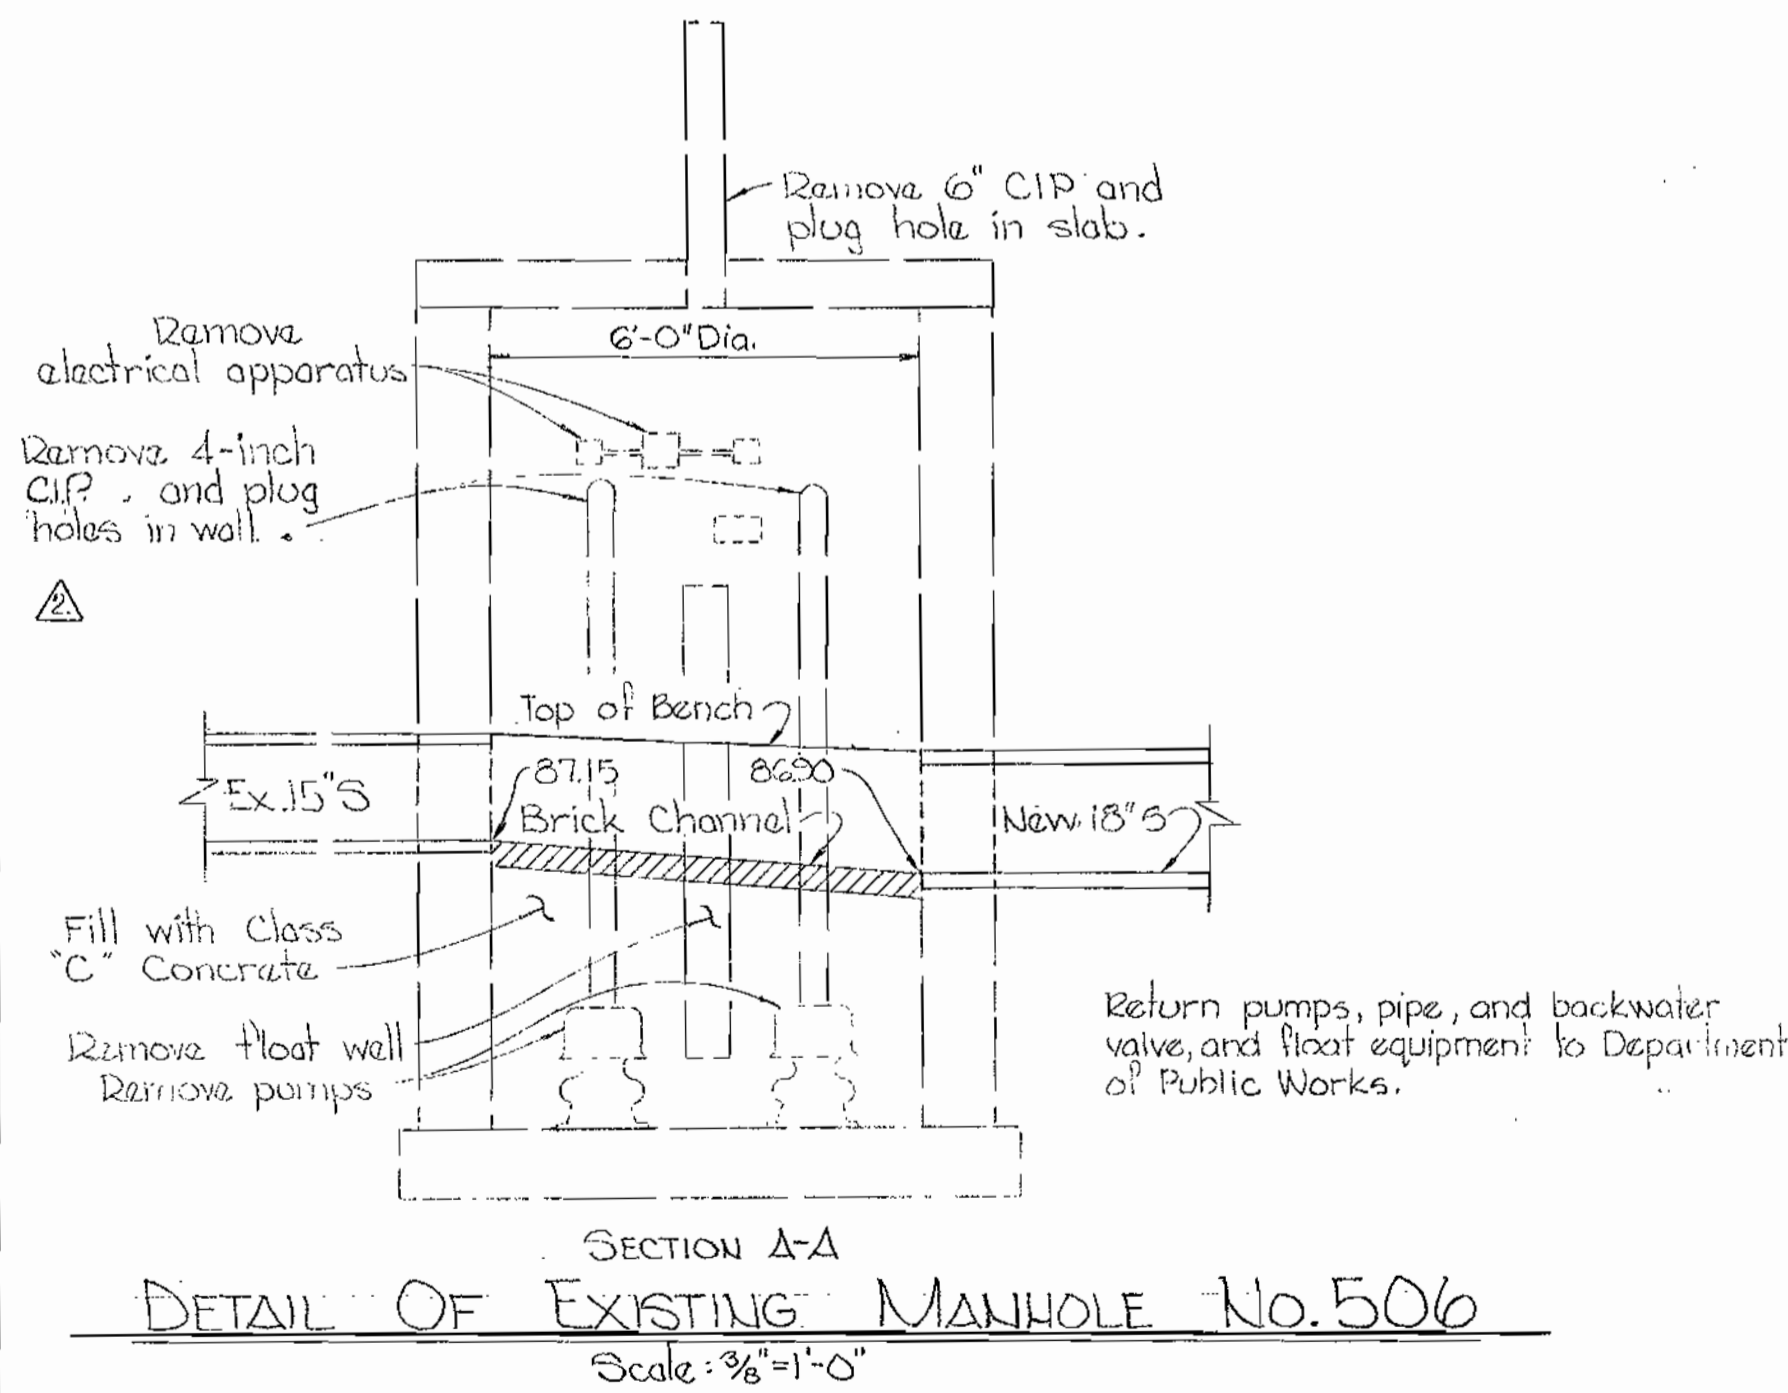 Remove 6" CIP and
plug hole in slab.
6'-0" Dia.
Remove
electrical apparatus
Remove 4-inch
C.I.P. and plug
holes in wall.
2
Top of Bench
87.15
86.90
Ex. 15" S
Brick Channel
New 18" S
Fill with Class
"C" Concrete
Remove float well
Remove pumps
Return pumps, pipe, and backwater
valve, and float equipment to Department
of Public Works.
SECTION A-A
DETAIL OF EXISTING MANHOLE NO. 506
Scale: 3/8" = 1'-0"